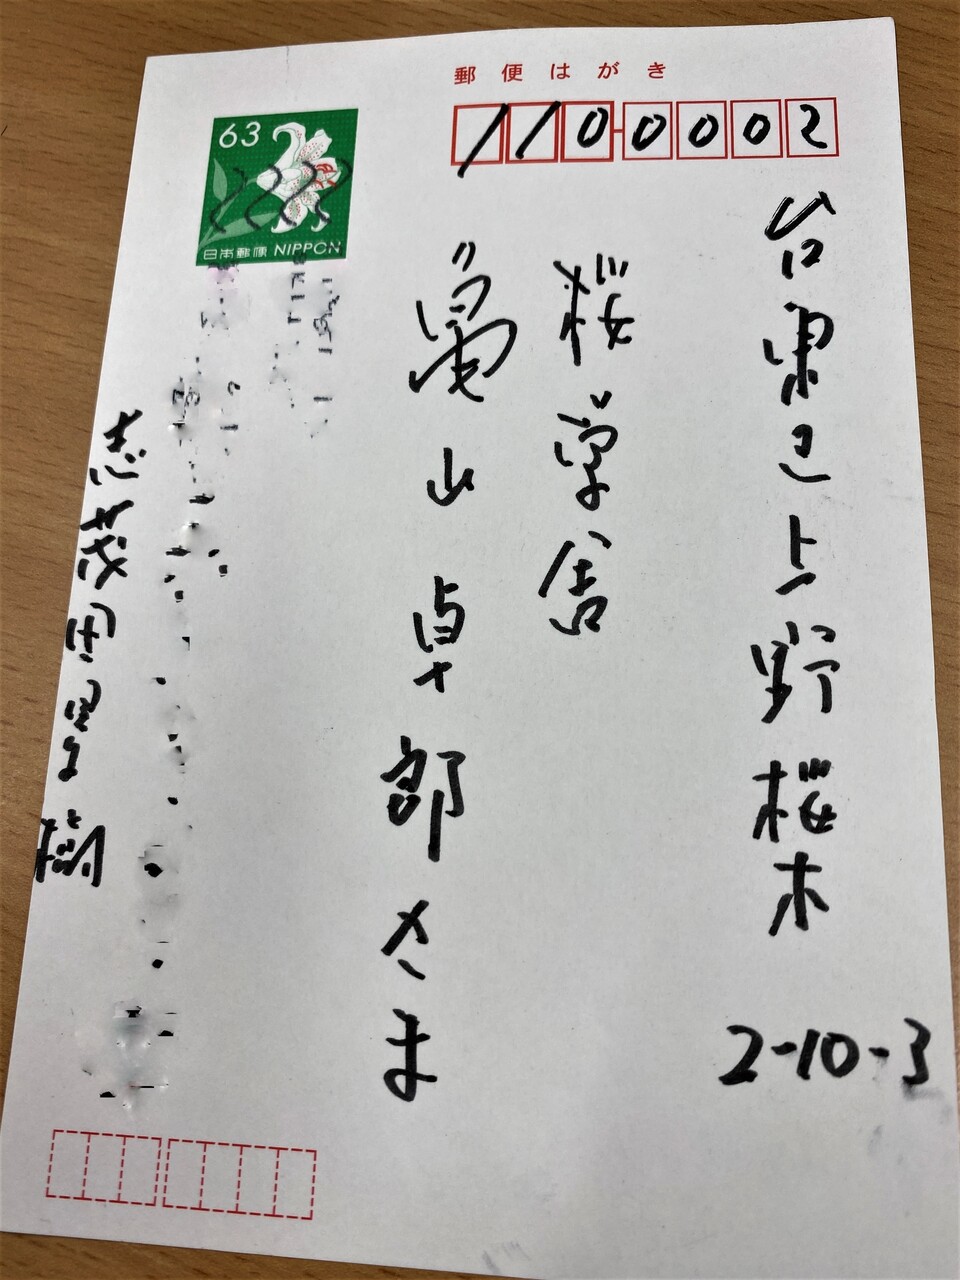 郵便はがき
1100002
63
日本郵便 NIPPON
台東区上野桜木
2-10-3
桜学舎
亀山卓郎さま
志茂田景樹